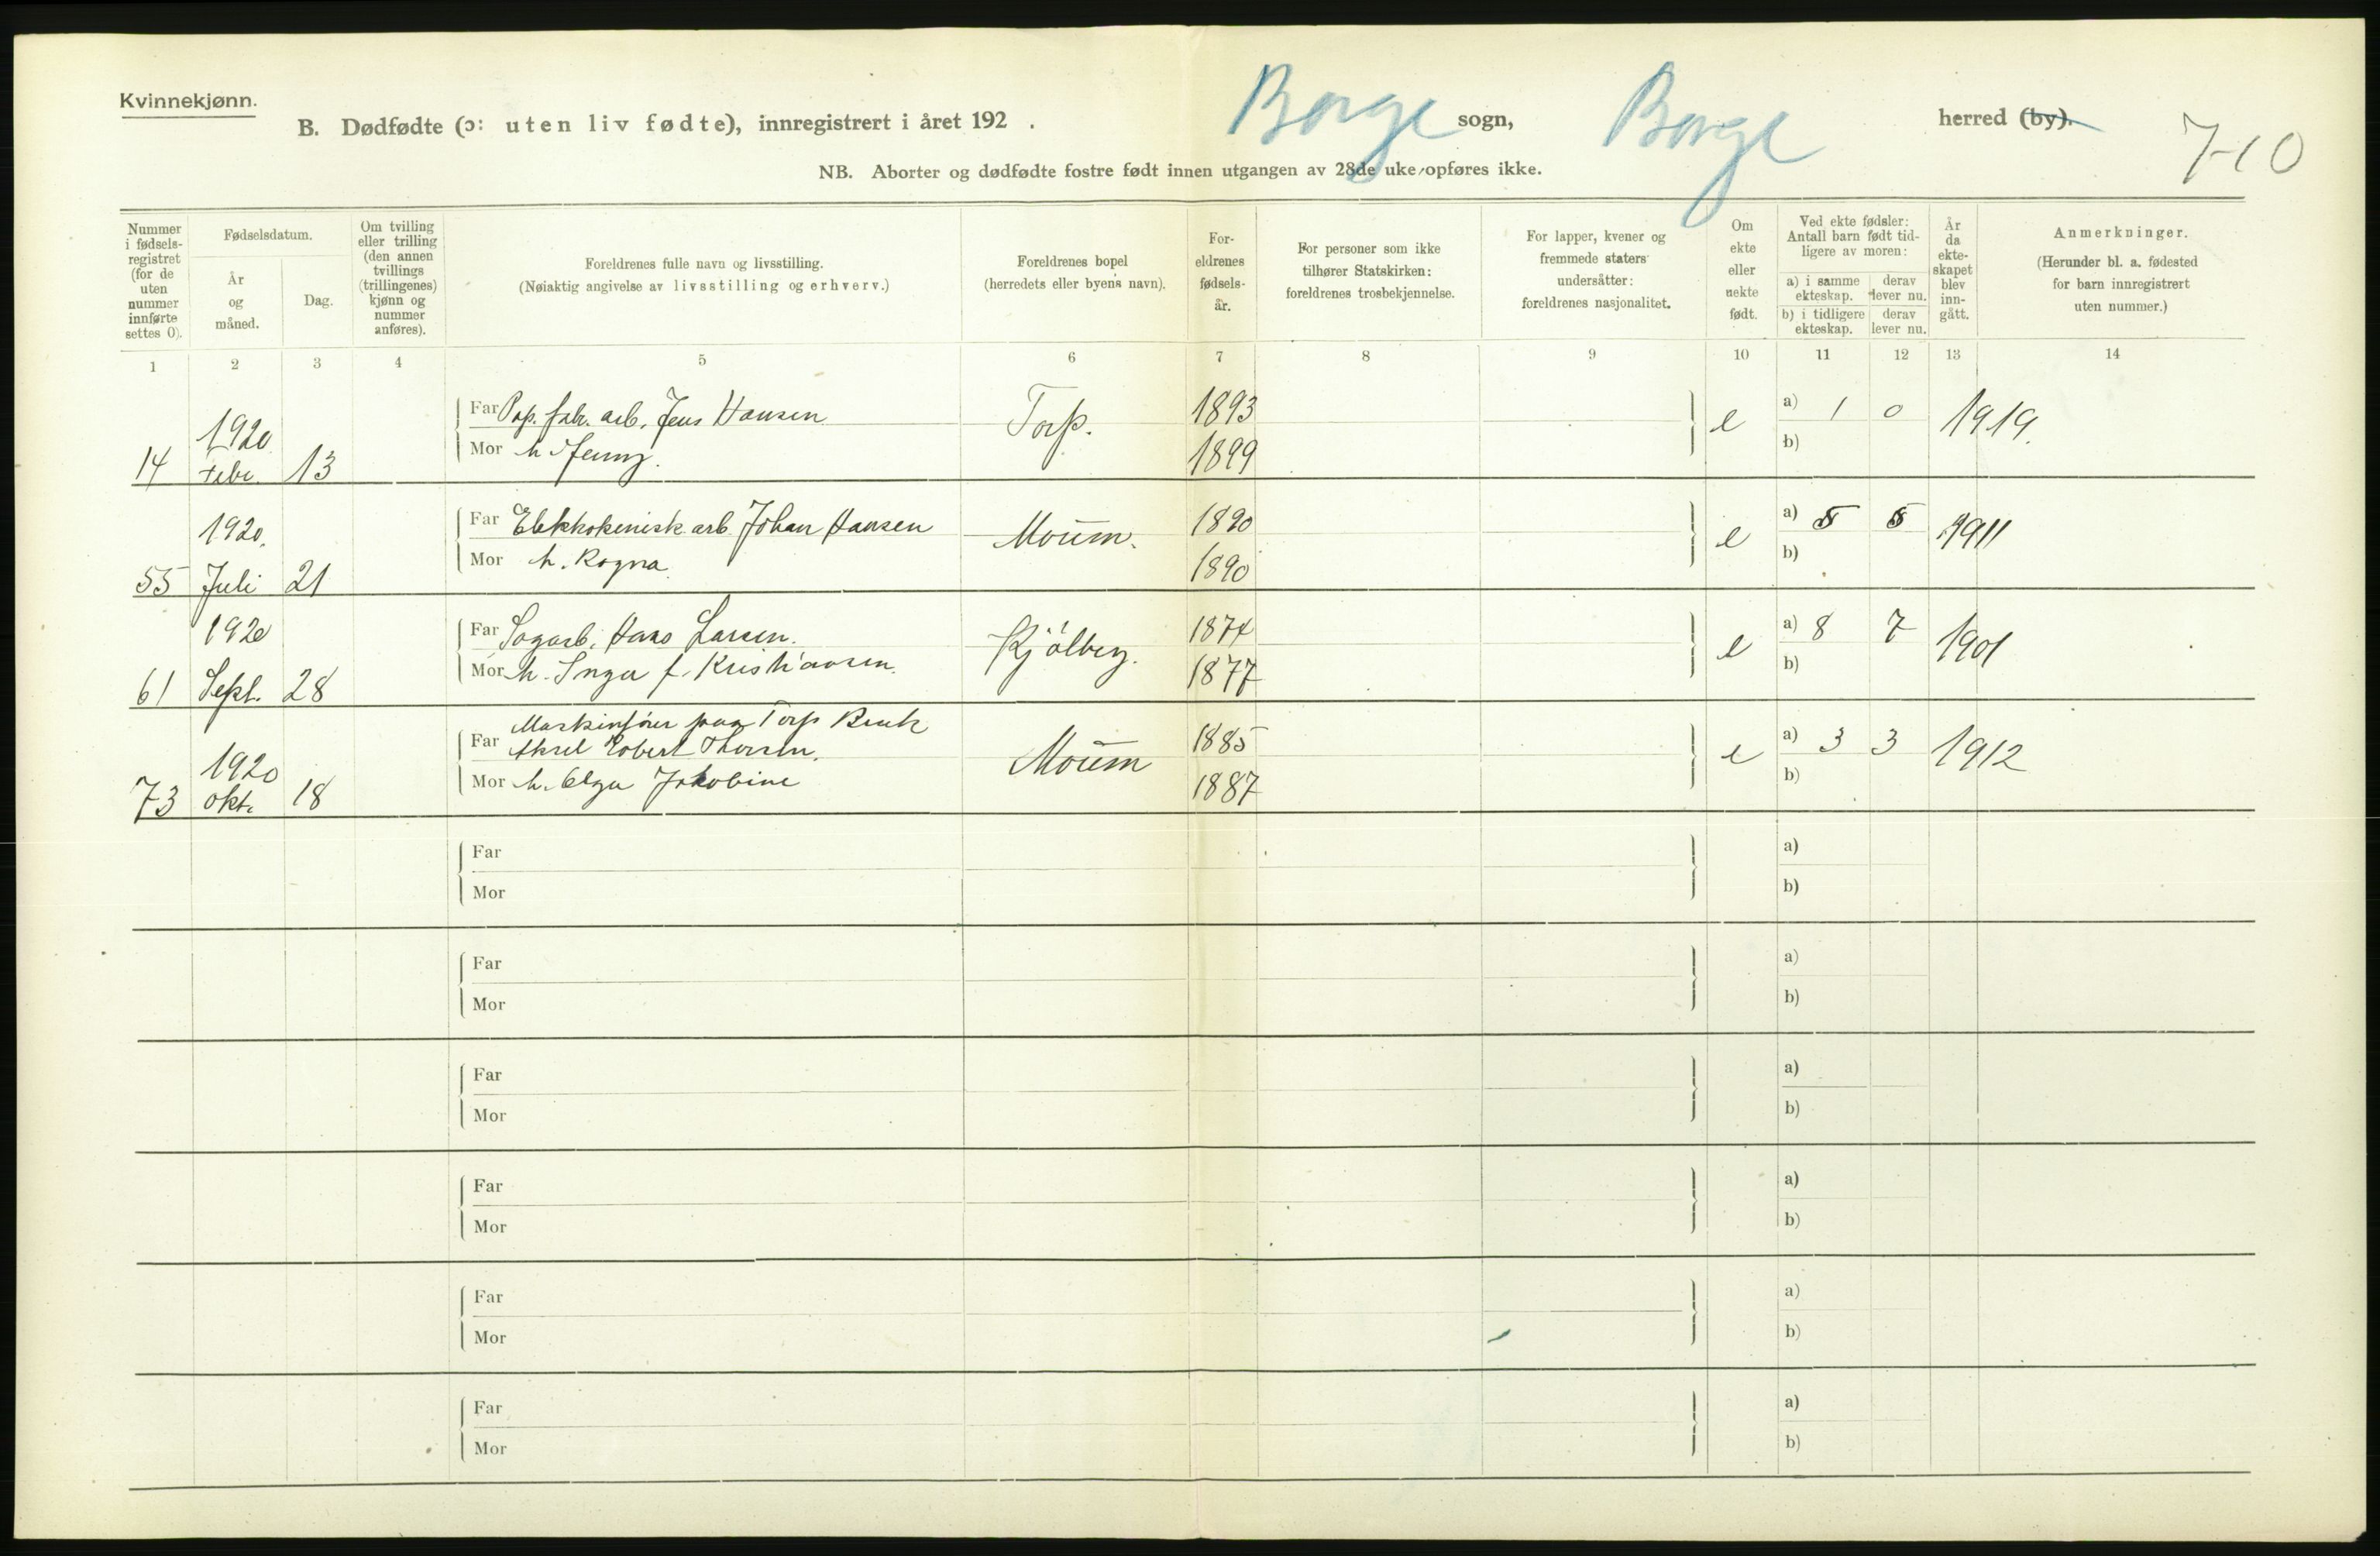 Kvinnekjønn.
B. Dødfødte (ɔ: uten liv fødte), innregistrert i året 192 . Borge sogn, Borge herred (by).
7-10
NB. Aborter og dødfødte fostre født innen utgangen av 28de uke opføres ikke.
Nummer i fødselsregistret (for de uten nummer innførte settes 0).
Fødselsdatum.
År og måned.
Dag.
Om tvilling eller trilling (den annen tvillings (trillingenes) kjønn og nummer anføres).
Foreldrenes fulle navn og livsstilling.
(Nøiaktig angivelse av livsstilling og erhverv.)
Foreldrenes bopel
(herredets eller byens navn).
Foreldrenes fødselsår.
For personer som ikke tilhører Statskirken: foreldrenes trosbekjennelse.
For lapper, kvener og fremmede staters undersåtter: foreldrenes nasjonalitet.
Om ekte eller uekte født.
Ved ekte fødsler: Antall barn født tidligere av moren:
a) i samme ekteskap. derav lever nu.
b) i tidligere ekteskap. derav lever nu.
År da ekteskapet blev inngått.
Anmerkninger.
(Herunder bl. a. fødested for barn innregistrert uten nummer.)
1 2 3 4 5 6 7 8 9 10 11 12 13 14
14 1920 Febr. 13
Far Pap. fabr. arb. Jens Hansen
Torp. 1893 e a) 1 0 1919.
Mor h Jenny. 1899 b)
55 1920. Juli 21
Far Elektrokemisk arb. Johan Hansen
Moum. 1890 e a) 5 5 1911
Mor h. Ragna 1890 b)
61 1920 Sept. 28
Far Sagarb. Hans Larsen.
Kjølberg. 1874 e a) 8 7 1901
Mor h. Inga f. Kristiansen. 1877 b)
73 1920 Okt. 18
Far Maskinfører paa Torp Bruk
Aksel Robert Thorsen.
Moum 1885 e a) 3 3 1912
Mor h. Olga Jakobine 1887 b)
Far a)
Mor b)
Far a)
Mor b)
Far a)
Mor b)
Far a)
Mor b)
Far a)
Mor b)
Far a)
Mor b)